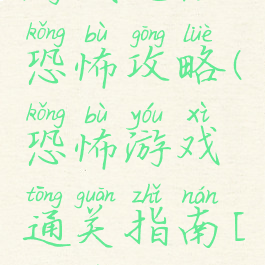 kǒng bù gōng lüè
恐怖攻略(
kǒng bù yóu xì
恐怖游戏
tōng guān zhǐ nán
通关指南[